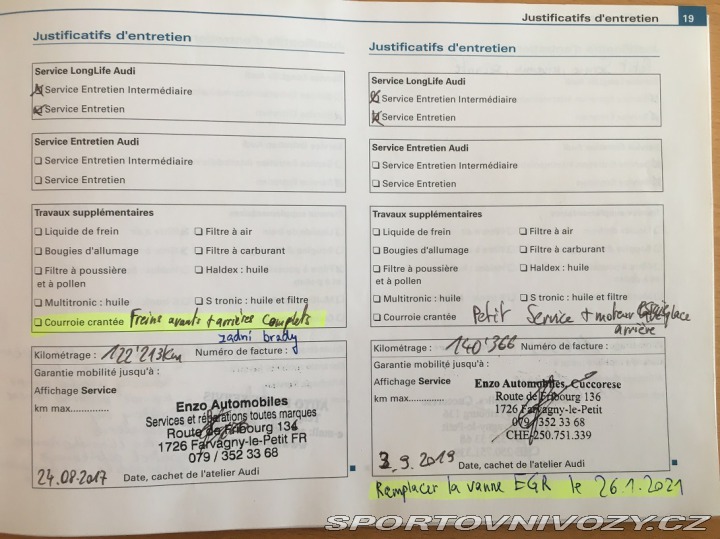 Justificatifs d'entretien 19
Justificatifs d'entretien
Service LongLife Audi
Service Entretien Intermédiaire
Service Entretien
Service Entretien Audi
❏ Service Entretien Intermédiaire
❏ Service Entretien
Travaux supplémentaires
❏ Liquide de frein ❏ Filtre à air
❏ Bougies d'allumage ❏ Filtre à carburant
❏ Filtre à poussière ❏ Haldex : huile
et à pollen
❏ Multitronic : huile ❏ S tronic : huile et filtre
❏ Courroie crantée Freins avants + arrières complets
zadní brzdy
Kilométrage : 122'213Km Numéro de facture :
Garantie mobilité jusqu'à :
Affichage Service
km max..............
Enzo Automobiles
Services et réparations toutes marques
Route de Fribourg 136
1726 Farvagny-le-Petit FR
079 / 352 33 68
24.08.2017 Date, cachet de l'atelier Audi
Justificatifs d'entretien
Service LongLife Audi
Service Entretien Intermédiaire
Service Entretien
Service Entretien Audi
❏ Service Entretien Intermédiaire
❏ Service Entretien
Travaux supplémentaires
❏ Liquide de frein ❏ Filtre à air
❏ Bougies d'allumage ❏ Filtre à carburant
❏ Filtre à poussière ❏ Haldex : huile
et à pollen
❏ Multitronic : huile ❏ S tronic : huile et filtre
❏ Courroie crantée Petit Service + moteur
arrière
Kilométrage : 140'366 Numéro de facture :
Garantie mobilité jusqu'à :
Affichage Service
km max..............
Enzo Automobiles, Cuccorese
Route de Fribourg 136
1726 Farvagny-le-Petit
079 / 352 33 68
CHE-250.751.339
3.9.2019 Date, cachet de l'atelier Audi
Remplacer la vanne EGR le 26.1.2021
SPORTOVNIVOZY.CZ